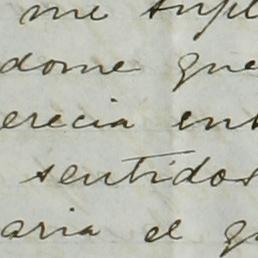 me supl
dome que
erecia ent
sentidos
aria el q